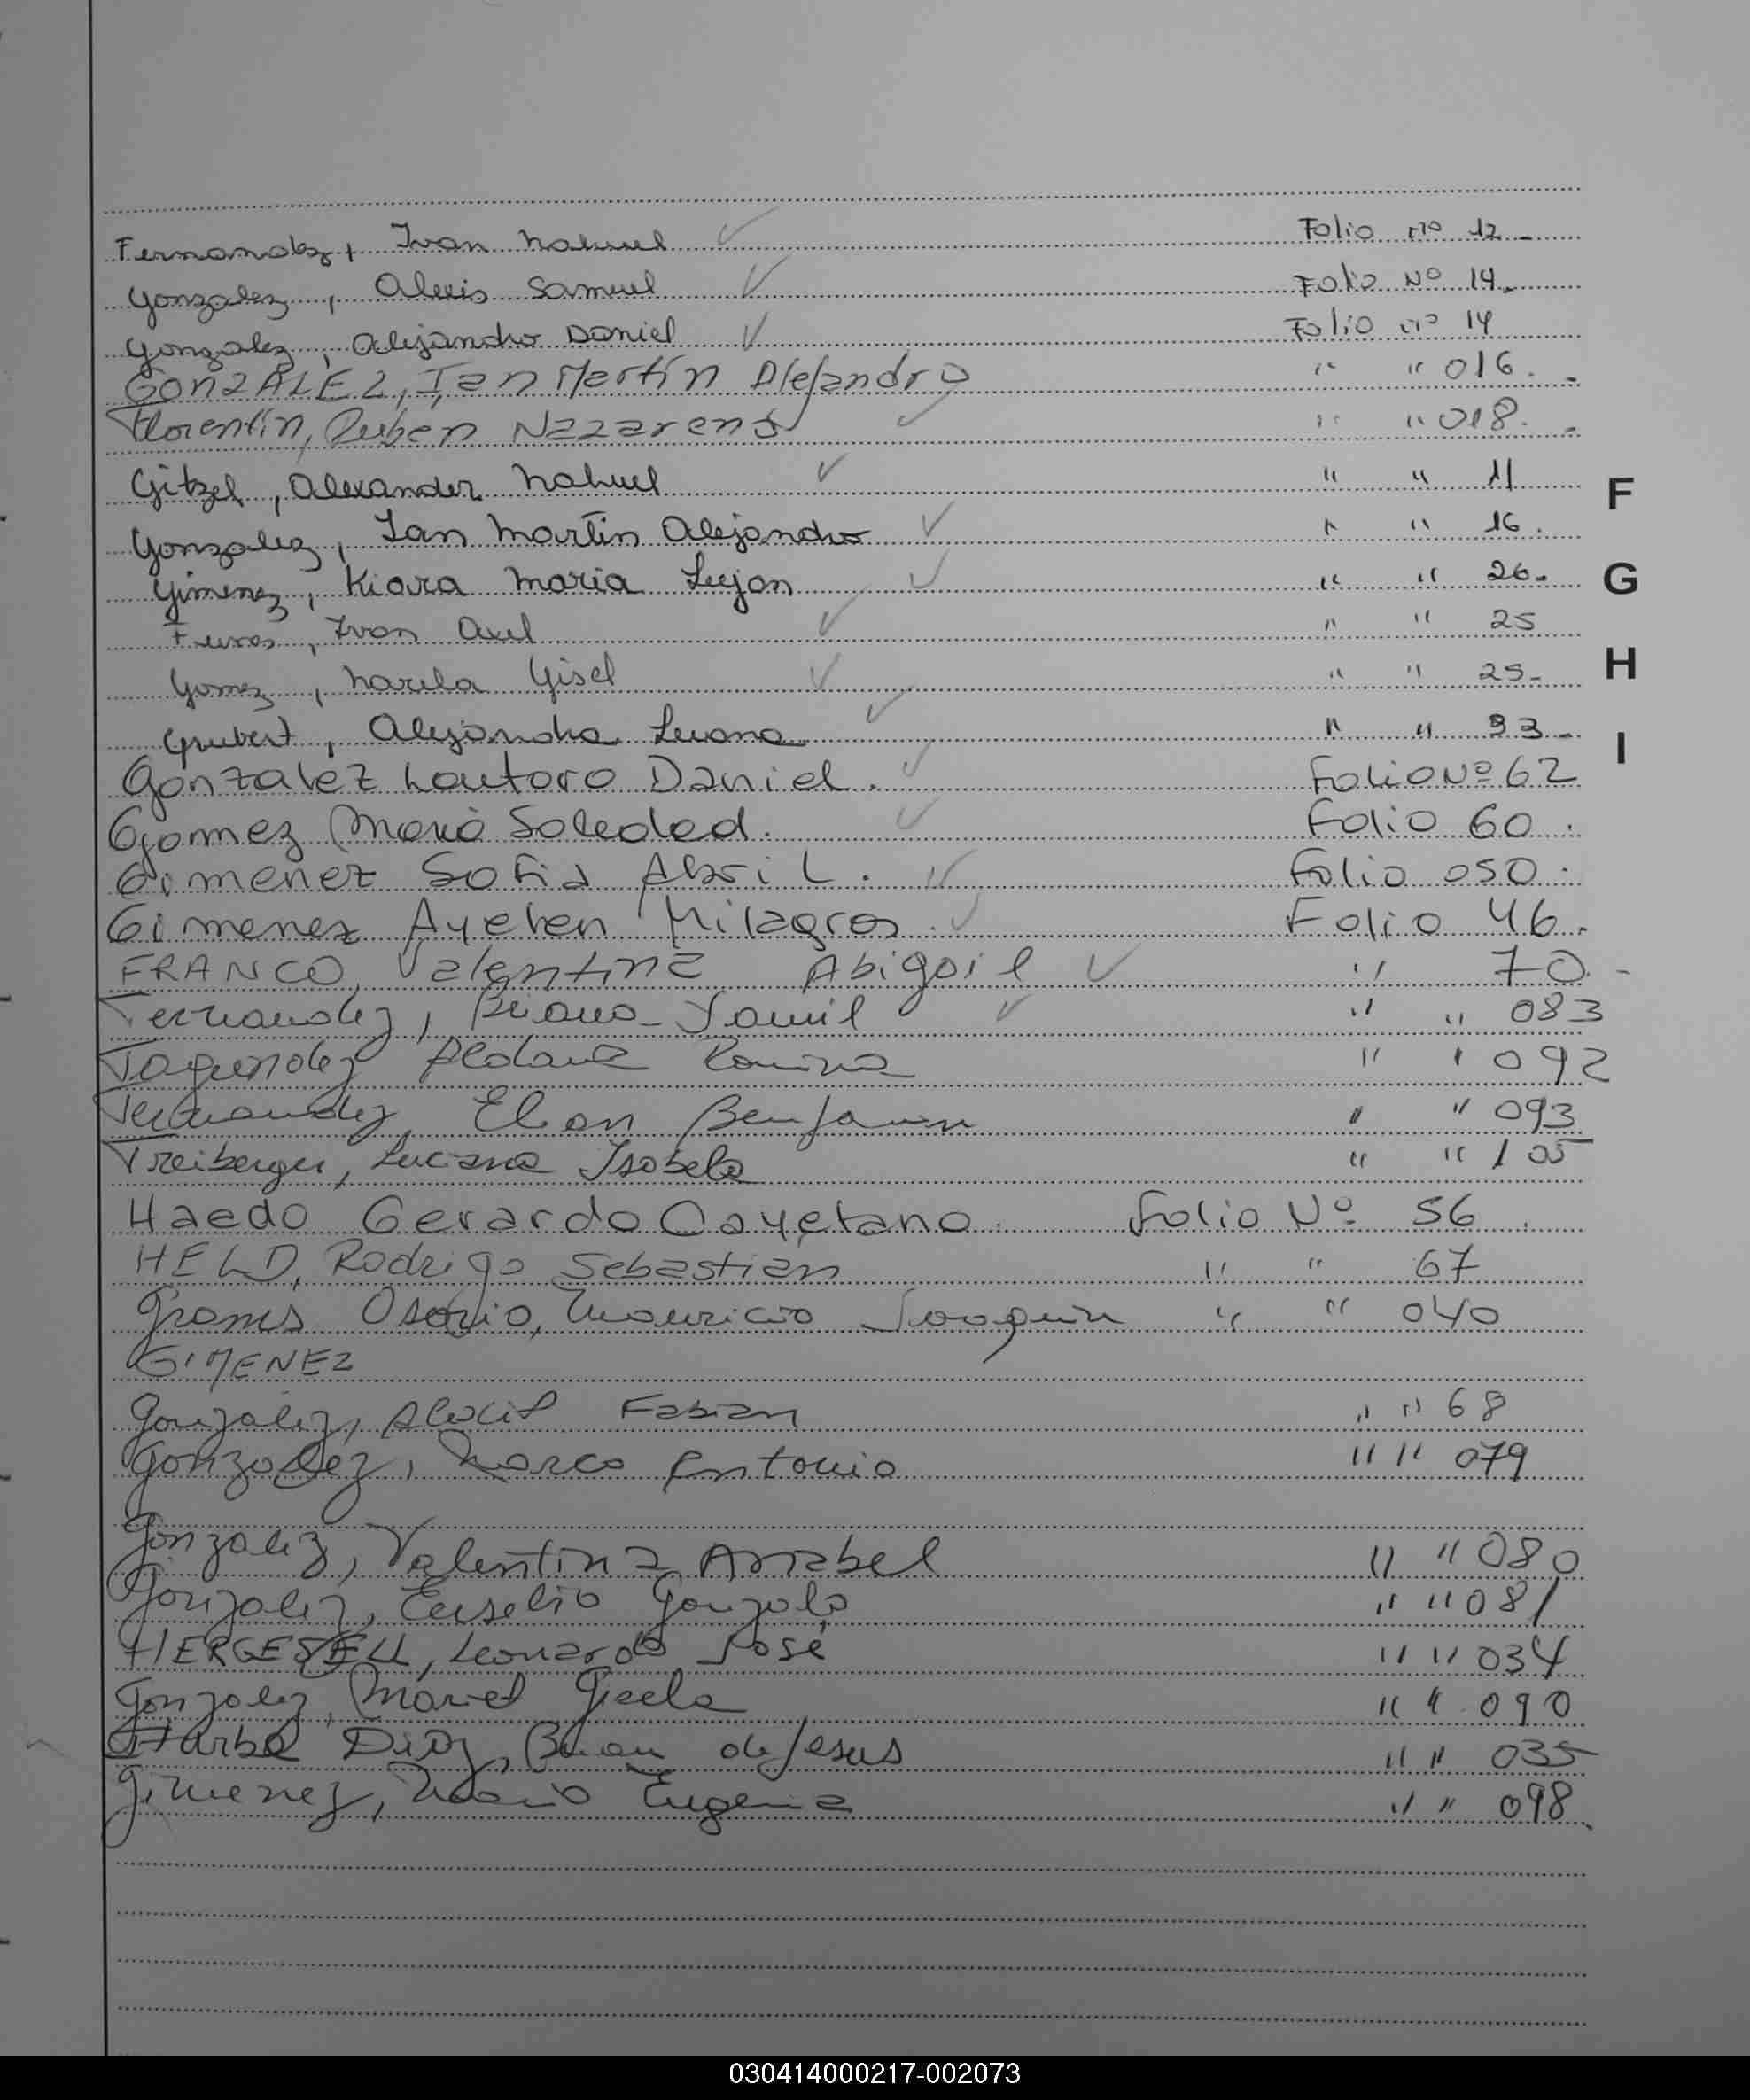 Fernandez, Ivan Nahuel Folio nº 12-
Gonzalez, Alexis Samuel Folio Nº 14.
Gonzalez, Alejandro Daniel Folio nº 14
GONZALEZ, Ian Martín Alejandro " " 016.
Florentín, Ruben Nazareno " " 018.
Gitzel, Alexander Nahuel " " 11
Gonzalez, Ian Martín Alejandro " " 16.
Gimenez, Kiara Maria Lujan " " 26-
Funes, Ivan Axel " " 25
Gomez, Narela Gisel " " 25-
Grubert, Alejandra Luana " " 33-
Gonzalez Lautaro Daniel. Folio Nº 62
Gomez Maria Soledad. Folio 60.
Gimenez Sofia Abril. Folio 050.
Gimenez Ayelen Milagros. Folio 46.
FRANCO, Valentina Abigail " 70.-
Fernandez, Briana Yamil " " 083
Fagundez Aldana Romina " " 092
Fernandez, Elian Benjamin " " 093
Freiberger, Luciana Isabela " " 105
Haedo Gerardo Cayetano. Folio Nº 56.
HELD, Rodrigo Sebastian " " 67
Osorio, Mauricio Joaquin " " 040
GIMENEZ
Gonzalez, Fabian " " 68
Gonzalez, Marco Antonio " " 079
Gonzalez, Valentina Anabel " " 080
Gonzalez, Eusebio Gonzalo " " 081
HERGESELL, Leonardo José " " 034
Gonzalez, Gisela " " 090
Diaz, Brian de Jesus " " 035
Gimenez, Maria Eugenia " " 098
F
G
H
I
030414000217-002073